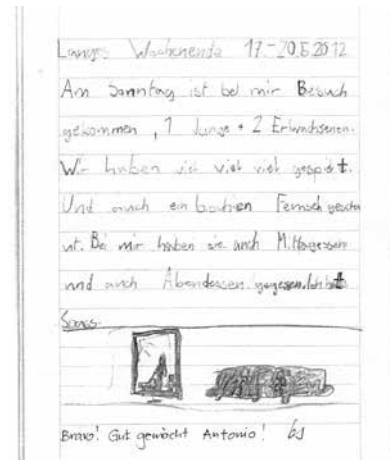 Langes Wochenende 17.-20.5.2012
Am Sonntag ist bei mir Besuch
gekommen, 1 Junge + 2 Erwachsenen.
Wir haben viel viel viel gespielt.
Und auch ein bschien Fernseh gescha
ut. Bei mir haben sie auch Mittagessen
und auch Abendessen gegessen. Ich hatte
Spass.
Bravo! Gut gemacht Antonio!